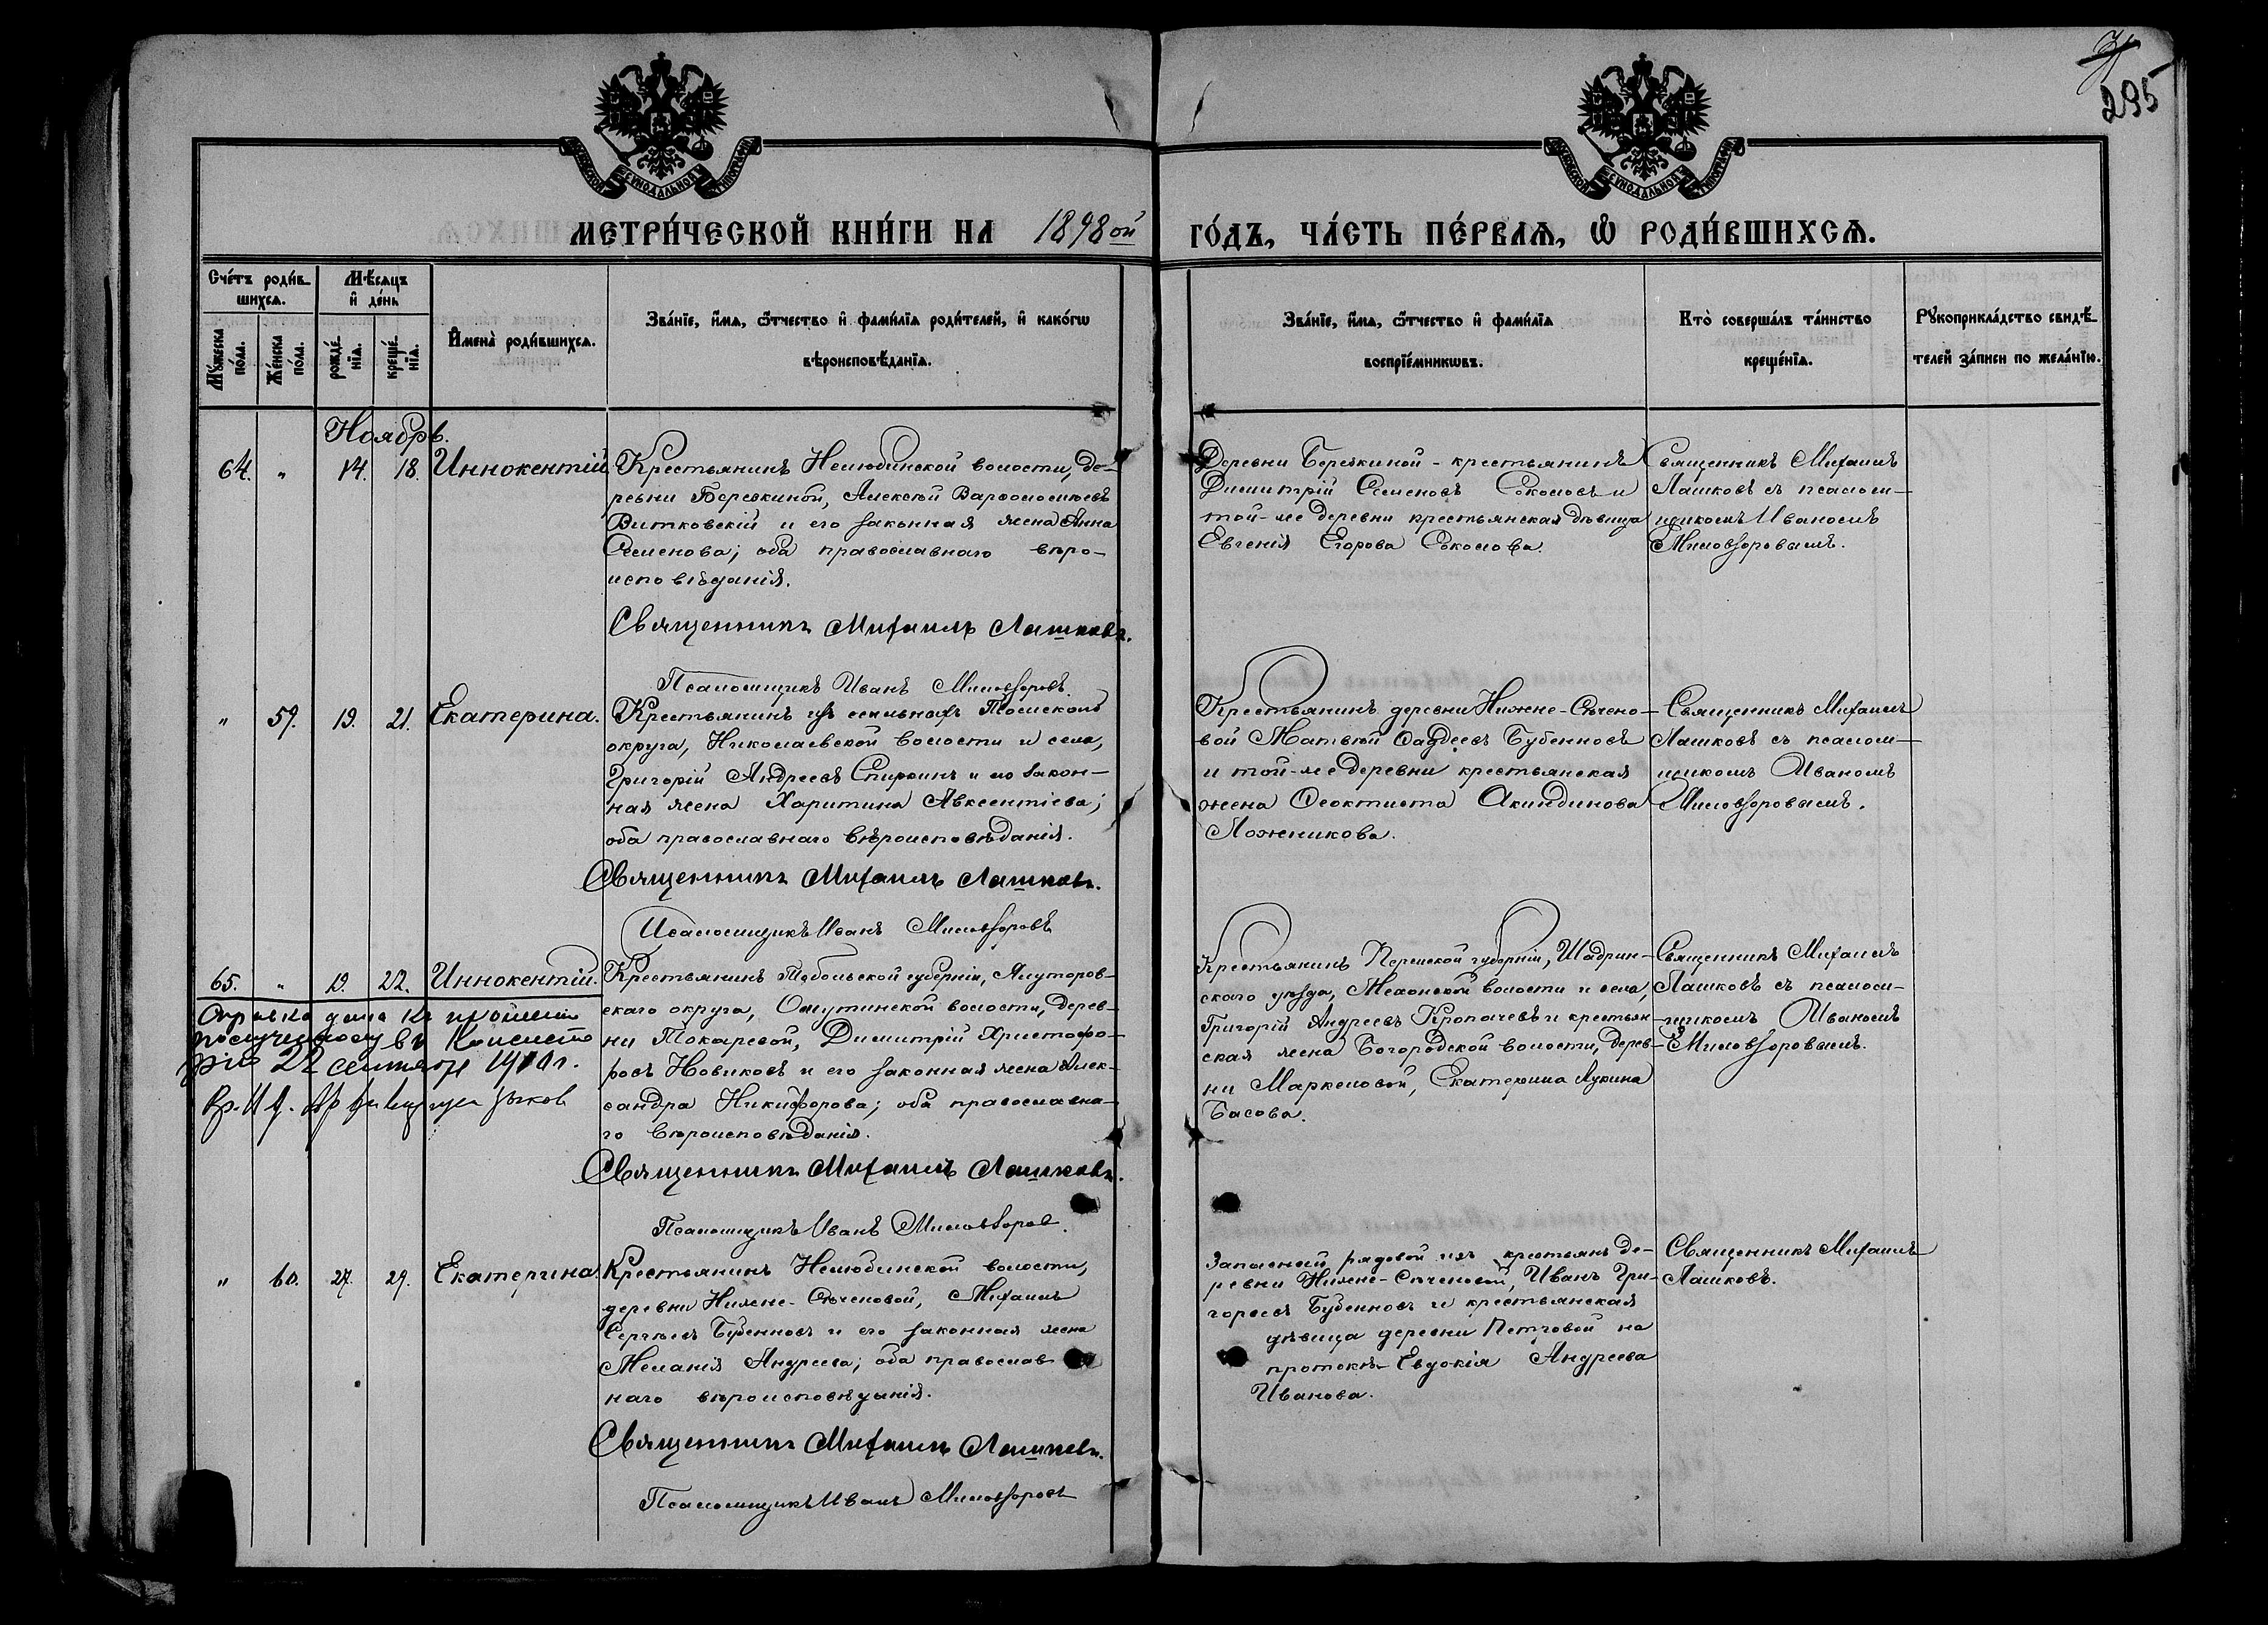 295
МЕТРИ́ЧЕСКОЙ КНИ́ГИ НА 1898ой
ГО́ДЪ, ЧА́СТЬ ПЕ́РВАѦ, Ѡ҆ РОДИ́ВШИХСѦ.
Сче́тъ роди́в-
шихсѧ.
Мѣ́сѧцъ
и҆ де́нь
Мꙋ́жеска по́ла.
Же́нска по́ла.
рожде́-
нїѧ.
креще́-
нїѧ.
И҆мена̀ роди́вшихсѧ.
Зва́нїе, и҆́мѧ, ѻ҆́тчество и҆ фами́лїѧ роди́телей, и҆ како́гѡ
вѣроисповѣ́данїѧ.
Зва́нїе, и҆́мѧ, ѻ҆́тчество и҆ фами́лїѧ
воспрїе́мникѡвъ.
Кто̀ соверша́лъ та́инство
креще́нїѧ.
Рꙋкоприкла́дство свидѣ́-
телей за́писи по жела́нїю.
Ноябрь.
64. „ 14. 18. Иннокентій
Крестьянинъ Нелюбинской волости, де-
ревни Березкиной, Алексѣй Варѳоломеевъ
Витковскій и его законная жена Анна
Семенова; оба православнаго вѣро-
исповѣданія.
Священникъ Михаилъ Лашковъ.
Псаломщикъ Иванъ Миловзоровъ.
Деревни Березкиной - крестьянинъ
Димитрій Семеновъ Соколовъ и
той-же деревни крестьянская дѣвица
Евгенія Егорова Соколова.
Священникъ Михаилъ
Лашковъ съ псаломщ-
щикомъ Иваномъ
Миловзоровымъ.
„ 59. 19. 21. Екатерина.
Крестьянинъ изъ ссыльныхъ Томскаго
округа, Николаевской волости и села,
Григорій Андреевъ Спиринъ и его закон-
ная жена Харитина Авксентіева;
оба православнаго вѣроисповѣданія.
Священникъ Михаилъ Лашковъ.
Псаломщикъ Иванъ Миловзоровъ
Крестьянинъ деревни Нижне-Сѣчено-
вой Матвѣй Ѳаддеевъ Бубенновъ
и той-же деревни крестьянская
жена Ѳеоктиста Акиндинова
Ложникова.
Священникъ Михаилъ
Лашковъ съ псалом-
щикомъ Иваномъ
Миловзоровымъ.
65. „ 19. 22. Иннокентій.
Крестьянинъ Тобольской губерніи, Ялуторов-
скаго округа, Омутинской волости, дерев-
ни Токаревой, Димитрій Христофо-
ровъ Новиковъ и его законная жена Алек-
сандра Никифорова; оба православна-
го вѣроисповѣданія.
Священникъ Михаилъ Лашковъ.
Псаломщикъ Иванъ Миловзоров.
Справка дана
22 сентября 1910 г.
Крестьянинъ Пермской губерніи, Шадрин-
скаго уѣзда, Мехонской волости и села,
Григорій Андреевъ Кропачевъ и крестьян-
ская жена Богородской волости, дерев-
ни Маркеловой, Екатерина Лукина
Басова.
Священникъ Михаилъ
Лашковъ съ псалом-
щикомъ Иваномъ
Миловзоровымъ.
„ 60. 27. 29. Екатерина
Крестьянинъ Нелюбинской волости,
деревни Нижне-Сѣченовой, Михаилъ
Сергѣевъ Бубенновъ и его законная жена
Меланія Андреева; оба православ
наго вѣроисповѣданія.
Священникъ Михаилъ Лашковъ.
Псаломщикъ Иванъ Миловзоровъ
Запасный рядовой изъ крестьянъ де-
ревни Нижне-Сѣченовой, Иванъ Гри-
горьевъ Бубенновъ и крестьянская
дѣвица деревни Петровой на
протокѣ - Евдокія Андреева
Иванова.
Священникъ Михаилъ
Лашковъ.